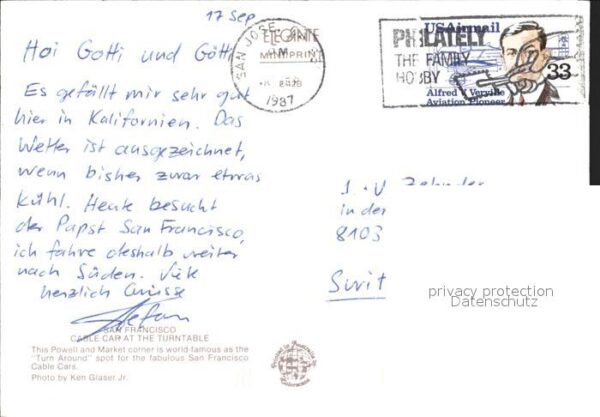 17 Sep
Hoi Gotti und Götti
Es gefällt mir sehr gut
hier in Kalifornien. Das
Wetter ist ausgezeichnet,
wenn bisher zwar etwas
kühl. Heute besucht
der Papst San Francisco,
ich fahre deshalb weiter
nach Süden. Viele
herzlich Grüsse
Stefan
SAN FRANCISCO
CABLE CAR AT THE TURNTABLE
This Powell and Market corner is world-famous as the
"Turn Around" spot for the fabulous San Francisco
Cable Cars.
Photo by Ken Glaser Jr.
SAN JOSE
PM
1987
MINIPRINT
PHILATELY
THE FAMILY
HOBBY
USAirmail
33
Alfred V. Verville
Aviation Pioneer
in der
8103
privacy protection
Datenschutz